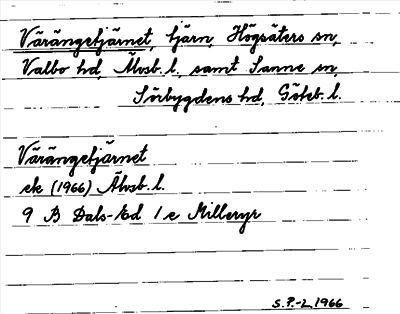 Värängetjärnet, tjärn, Högsäters sn,
Valbo hd, Älvsb. l. samt Sanne sn,
Sörbygdens hd, Göteb. l.
Värängetjärnet
ek (1966) Älvsb. l.
9 B Dals-Ed 1 e Milleryr
S.P.-L. 1966